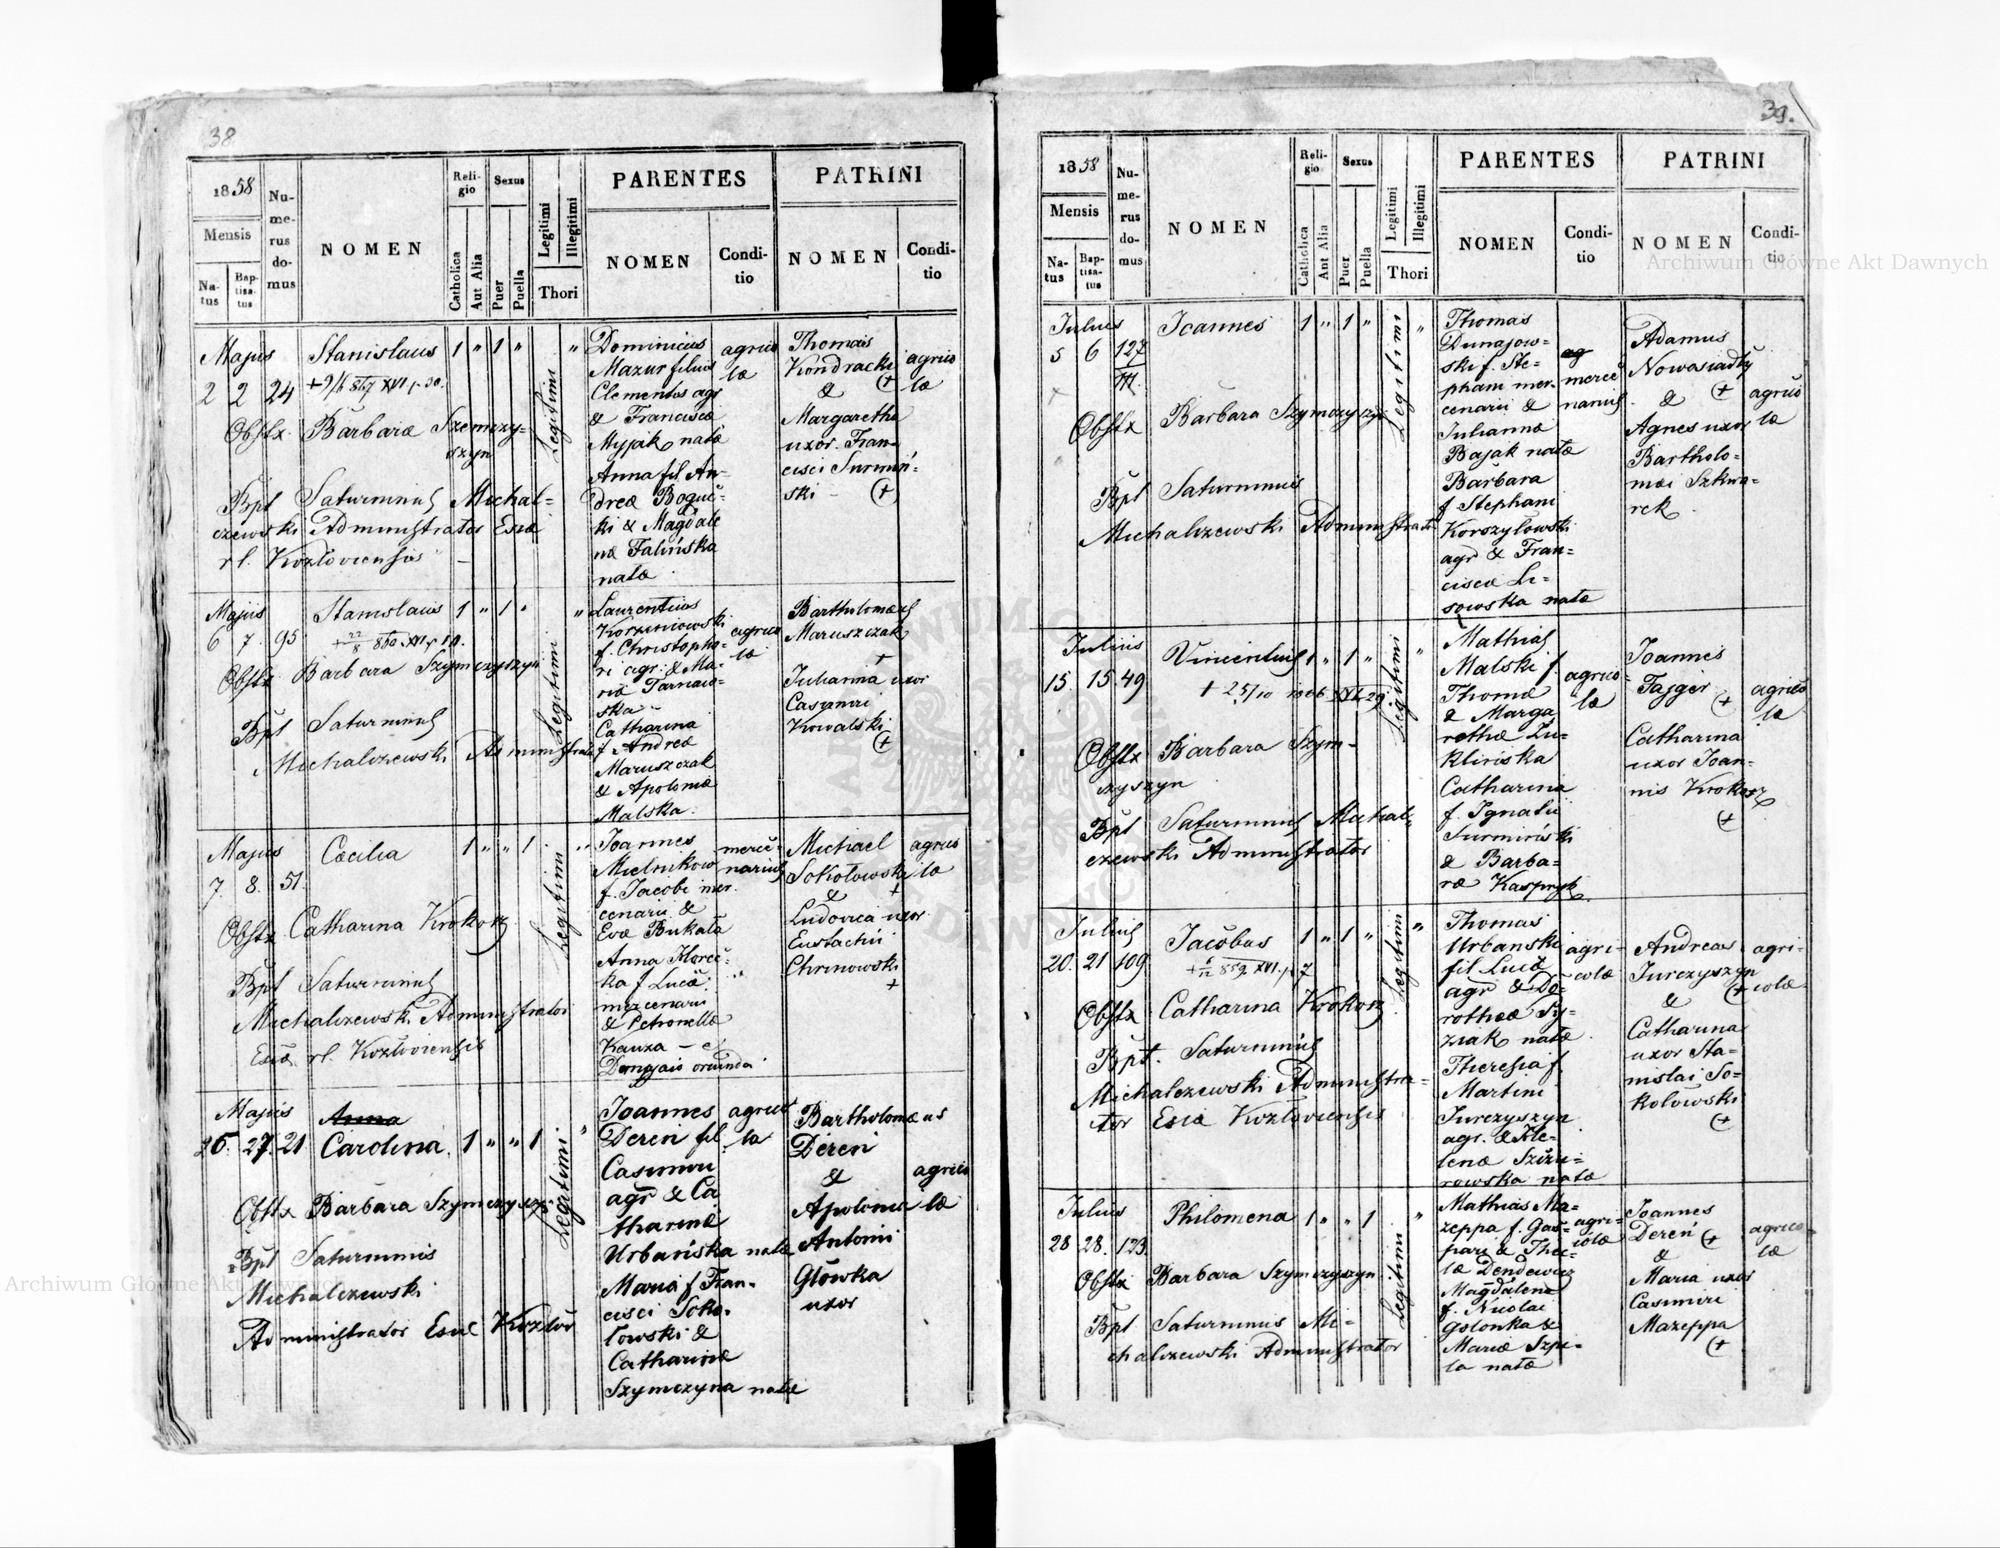 38
1858
Mensis
Na-
tus
Bap-
tisa-
tus
Nu-
me-
rus
do-
mus
NOMEN
Reli-
gio
Catholica
Aut Alia
Sexus
Puer
Puella
Legitimi
Illegitimi
Thori
PARENTES
NOMEN
Condi-
tio
PATRINI
NOMEN
Condi-
tio
Majus
2 2 24
Stanislaus 1 " 1 "
Obstx Barbara Szemczy-
szyn
Bpt Saturninus Michal-
czewski Administrator Esiæ
rl. Kozłoviensis
Legitimi
"
Dominicus
Mazur filius
Clementis agr
& Franciscæ
Myjak natæ
Anna fil An-
dreæ Boguc-
ki & Magdale
næ Falińska
natæ
agrico
læ
Thomas
Kondracki
& (+
Margaretha
uxor Fran-
cisci Surmiń-
ski - (+)
agrico
læ
Majus
6 7. 95
Stanislaus 1 " 1 "
+ 22/8 860. XVI. p 10.
Obstx Barbara Szymczyszyn
Bpt Saturninus
Michalczewski Administrator
Legitimi
"
Laurentius
Korzeniowski
f. Christopho-
ri agr. & Ma-
riæ Tarnaw-
ska
Catharina
f Andreæ
Maruszczak
& Apoloniæ
Malska.
agrico
læ
Bartholomæus
Maruszczak
+
Julianna uxor
Casimiri
Kowalski
(+
Majus
7. 8. 51
Cæcilia 1 " " 1
Obstx Catharina Krokosz
Bpt Saturninus
Michalczewski Administrator
Esiæ rl. Kozłoviensis
Legitimi
"
Joannes
Mielnikow
f. Jacobi mer.
cenarii &
Evæ Bukata
Anna Horec-
ka f Lucæ
mercenarii
& Petronellæ
Kauza - e
oriunda
mercē-
narius
Michael
Sokołowski
& +
Ludovica uxor
Eustachii
Chrinowski
+
agrico
læ
Majus
26. 27. 21
Anna
Carolina. 1 " " 1
Obstx Barbara Szymczyszyn
Bpt Saturninus
Michalczewski
Administrator Esiæ Kozłov
Legitimi
"
Joannes
Dereń fil
Casimiri
agr & Ca
tharinæ
Urbańska natæ
Maria f Fran-
cisci Soko-
łowski &
Catharinæ
Szymczyna natæ
agrico
læ
Bartholomæus
Dereń
&
Apolonia
Antoni
Główka
uxor
agrico
læ
39.
1858
Mensis
Na-
tus
Bap-
tisa-
tus
Nu-
me-
rus
do-
mus
NOMEN
Reli-
gio
Catholica
Aut Alia
Sexus
Puer
Puella
Legitimi
Illegitimi
Thori
PARENTES
NOMEN
Condi-
tio
PATRINI
NOMEN
Condi-
tio
Julius
5 6 127
III.
Joannes 1 " 1 "
Obstx Barbara Szymczyszyn
Bpt Saturninus
Michalczewski Administrator
Legitimi
"
Thomas
Dunajow-
ski f. Ste-
phani mer-
cenarii &
Julianna
Bajak natæ
Barbara
f Stephani
Korszyłowski
agr & Fran-
ciscæ Li-
sowska natæ
ag
mercē
narius
Adamus
Nowosiadły
& (+
Agnes uxor
Bartholo-
mæi Szkwa-
rek
agrico
læ
Julius
15 15. 49
Vincentius 1 " 1 "
Obstx Barbara Szym-
szyszyn
Bpt Saturninus Michal-
czewski Administrator
Legitimi
"
Mathias
Malski f.
Thomæ
& Marga
rethæ Żu-
klińska
Catharina
f. Ignatii
Surmiński
& Barba-
ræ Kaspryk
agrico-
læ
Joannes
Tajger
(+
Catharina
uxor Joan-
nis Krokosz
(+
agrico
læ
Julius
20. 21 109
Jacobus 1 " 1 "
+ 6/12 859 XVI. p 7
Obstx Catharina Krokosz
Bpt. Saturninus
Michalczewski Administra-
tor Esiæ Kozłoviensis
Legitimi
"
Thomas
Urbanski
fil Lucæ
agr & Do-
rotheæ Sy-
ziak natæ
Theresia f.
Martini
Jurczyszyn
agr. & He-
lenæ
rowska natæ
agri-
colæ
Andreas
Jurczyszyn
& (+
Catharina
uxor Sta-
nislai So-
kołowski
(+
agri-
colæ
Julius
28 28. 123
Philomena 1 " " 1
Obstx Barbara Szymczyszyn
Bpt Saturninus Mi-
chalczewski Administrator
Legitimi
"
Mathias Ma-
zeppa f. Gas-
pari & Thec-
læ Dendewicz
Magdalena
f. Nicolai
Golonka &
Mariæ Szpi-
la natæ
agri-
colæ
Joannes
Dereń (+
&
Maria uxor
Casimiri
Mazeppa
(+
agrico
læ
Archiwum Główne Akt Dawnych
Archiwum Główne Akt Dawnych